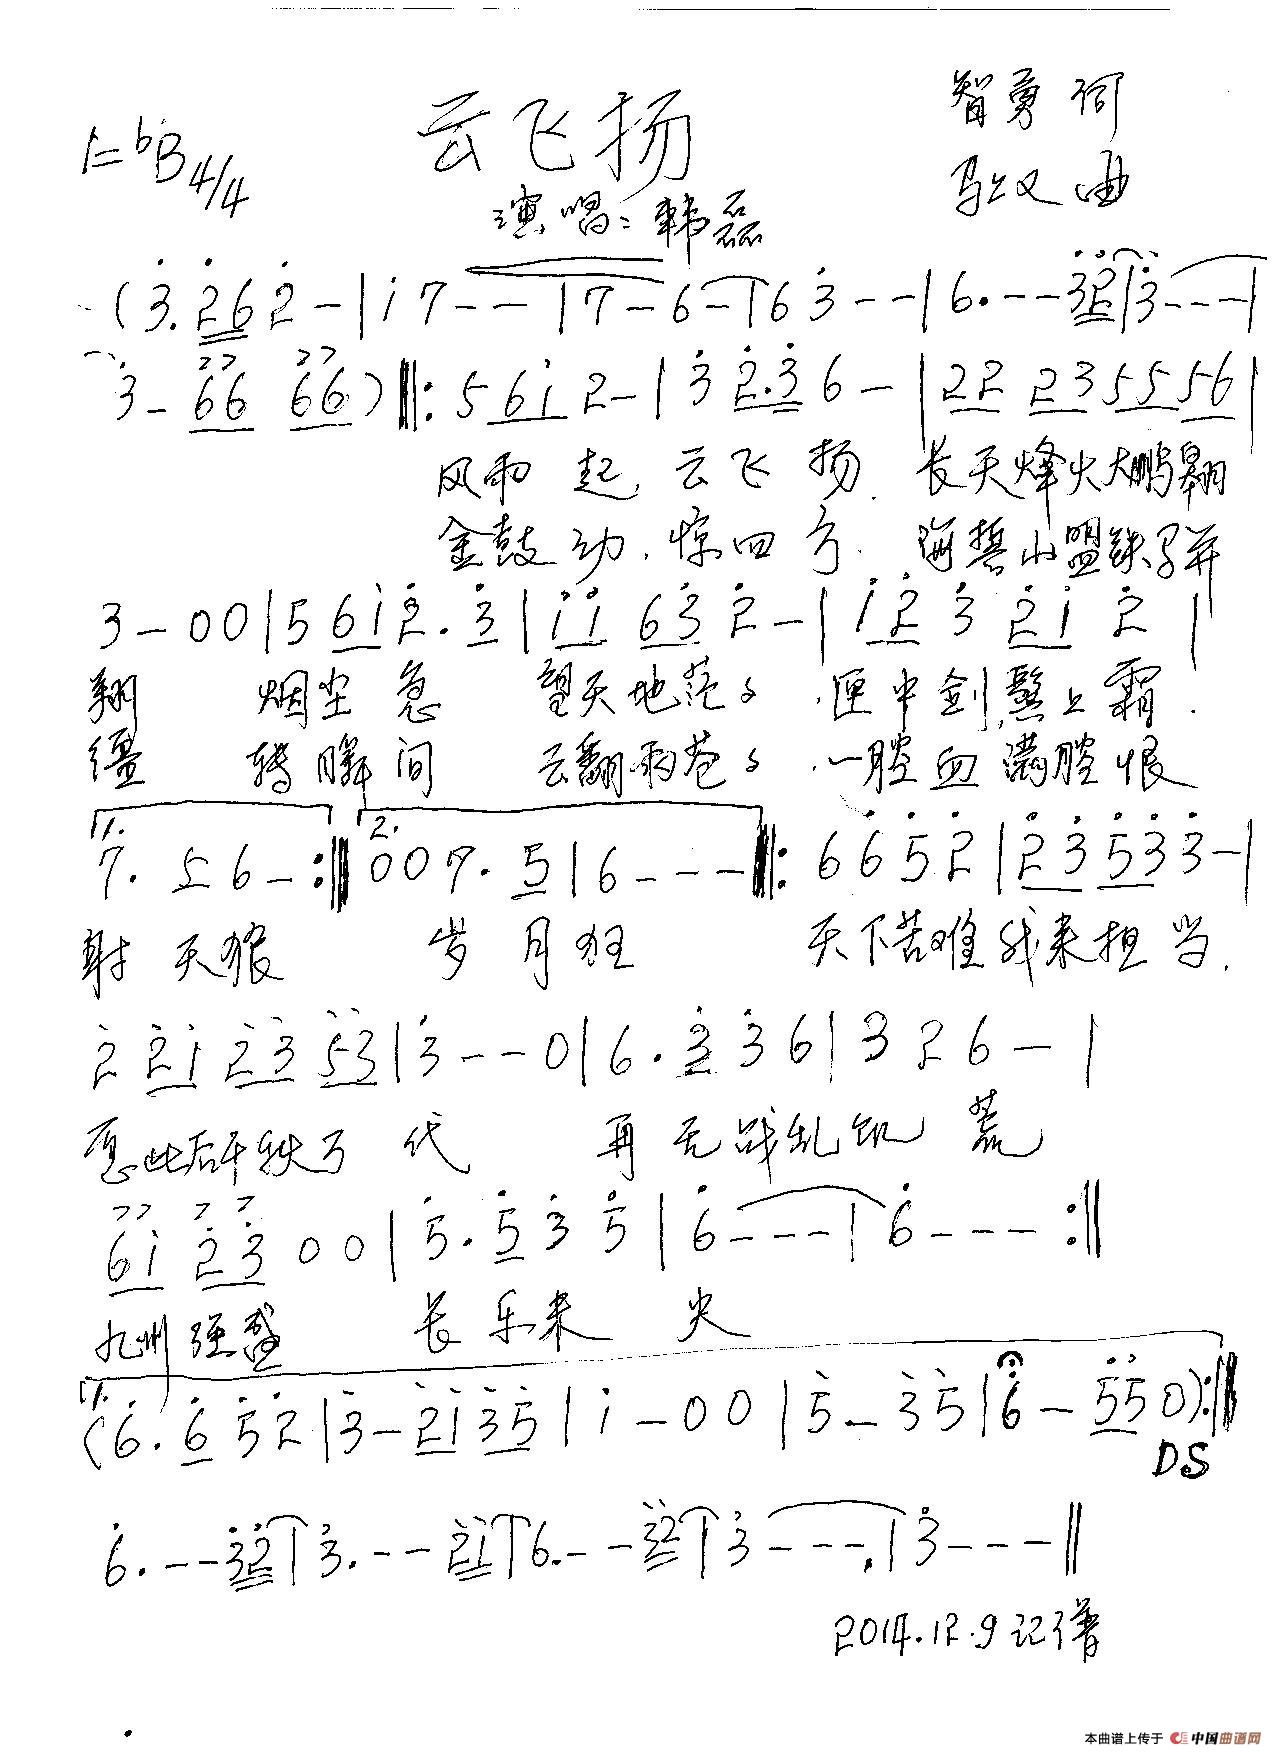 云飞扬
智勇 词
1=bB 4/4
曲
演唱：韩磊
(3. 2 6 2 - | i 7 - - | 7 - 6 - | 6 3 - - | 6. - - 3 2 | 3 - - - |
3 - 6 6 6 6 ) ‖: 5 6 i 2 - | 3 2. 3 6 - | 2 2 2 3 5 5 5 6 |
风雨 起 云飞 扬 长天烽火大鹏翱
金鼓 动 惊四 方 海誓山盟铁马并
3 - 0 0 | 5 6 i 2. 3 | i i 6 3 2 - | i 2 3 2 i 2 |
翔 烟尘 急 望天地茫々 匣中剑 鬓上霜
缰 转瞬 间 云翻雨苍々 一腔血满腔恨
1. 7. 5 6 - :‖ 2. 0 0 7. 5 | 6 - - - ‖: 6 6 5 2 | 2 3 5 3 3 - |
射 天狼 岁 月 狂 天下苦难我来担当
2 2 1 2 3 5 3 | 3 - - 0 | 6. 3 3 6 | 3 2 6 - |
愿此后千秋万 代 再 无战乱饥 荒
6 i 2 3 0 0 | 5. 5 3 5 | 6 - - - | 6 - - - :‖
九州强盛 长 乐未 央
1. (6. 6 5 2 | 3 - 2 i 3 5 | i - 0 0 | 5 - 3 5 | 6 - 5 5 0 ) :‖
DS
6. - - 3 2 | 3. - - 2 1 | 6. - - 3 2 | 3 - - - | 3 - - - ‖
2014.12.9 记谱
本曲谱上传于 中国曲谱网